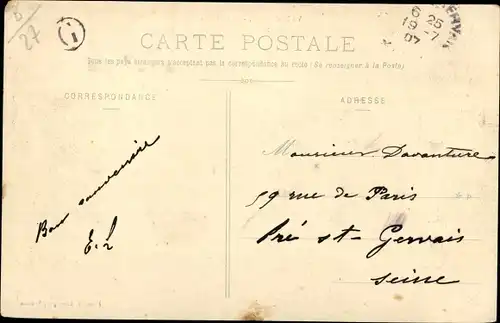 CARTE POSTALE
Tous les pays étrangers n'acceptent pas la correspondance au recto (Se renseigner à la Poste)
CORRESPONDANCE
ADRESSE
27
1
25
-7
07
Monsieur Davanture
59 rue de Paris
Pré st- Gervais
Seine
Bon souvenir
E. L